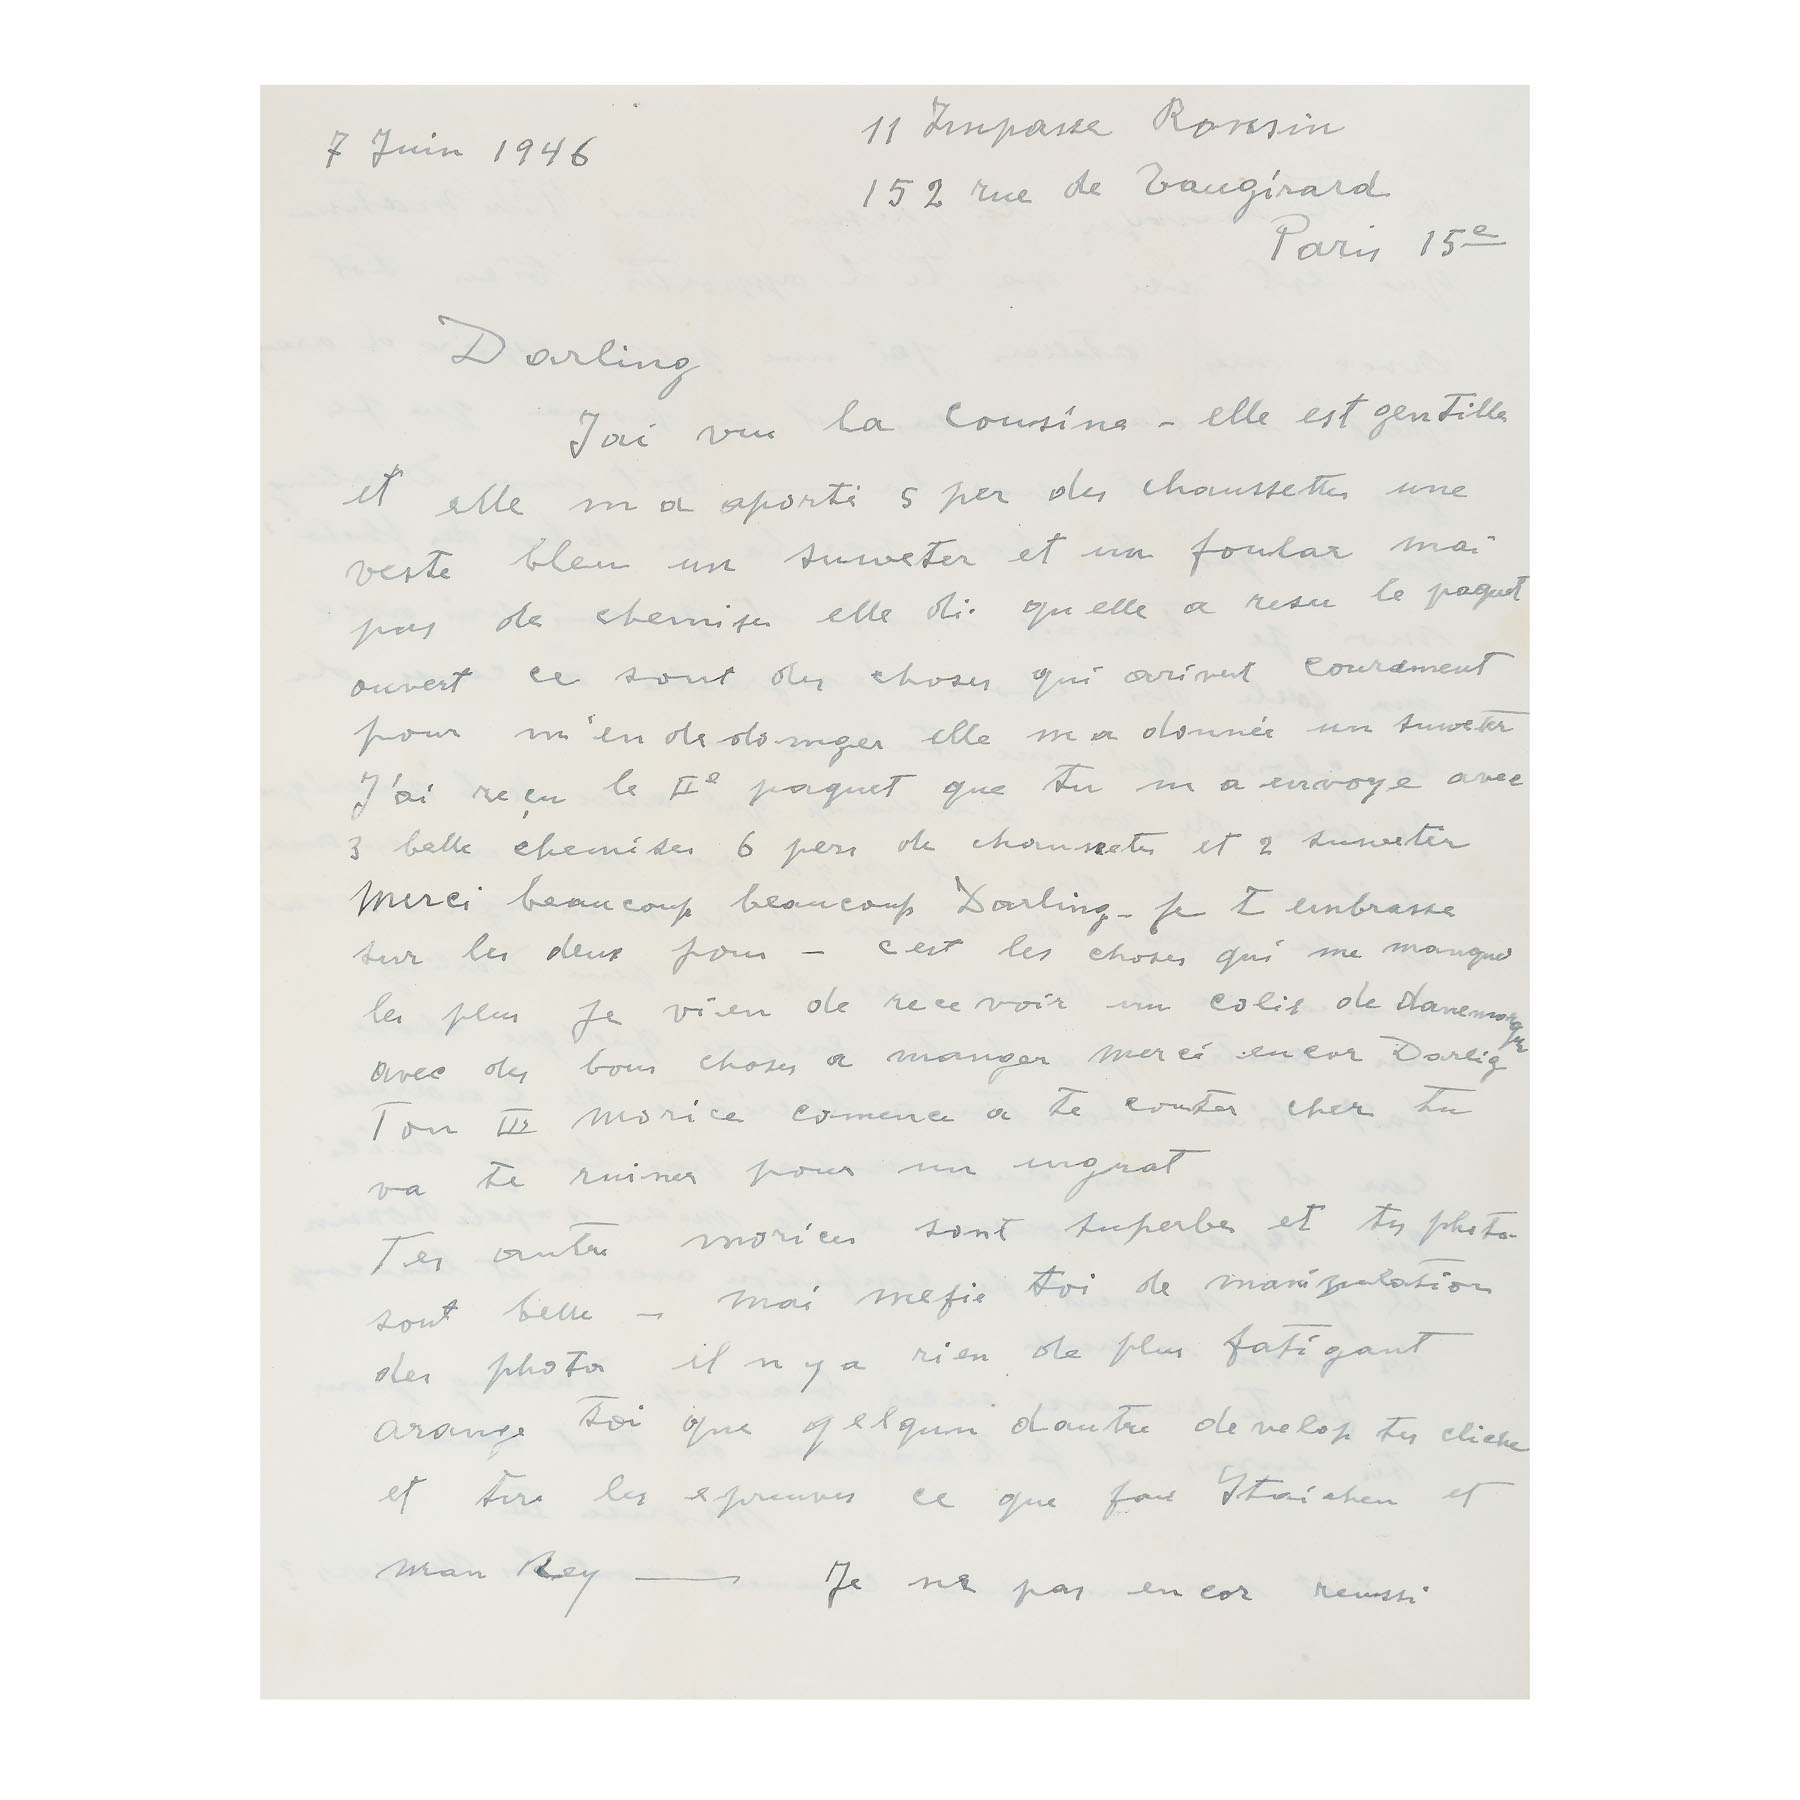 7 Juin 1946
11 Impasse Ronsin
152 rue de Vaugirard
Paris 15e
Darling
J'ai vu la cousine - elle est gentille
et elle m a aporté 5 per des chaussettes une
veste bleu un suweter et un foular mai
pas de chemises elle di qu elle a resu le paquet
ouvert ce sont des choses qui arivent courament
pour m'en dedomger elle m a donnée un suweter
J'ai reçu le IIe paquet que tu m a envoye avec
3 belle chemises 6 pers de chaussetes et 2 suweter
Merci beaucoup beaucoup Darling - je t embrasse
sur les deux jous - c est les choses qui me manque
les plus Je vien de recevoir un colis de Danemarque
avec des bons choses a manger merci encor Darlig
Ton III morice comence a te couter cher tu
va te ruiner pour un ingrat
Tes autre morices sont superbes et tes photo
sont belle - mai mefie toi de manipulation
des photo il n y a rien de plus fatigant
arange toi que qelqun dautre develop tes cliche
et tire les epreuves ce que fai Staichen et
man Rey — Je ne pas encor reussi